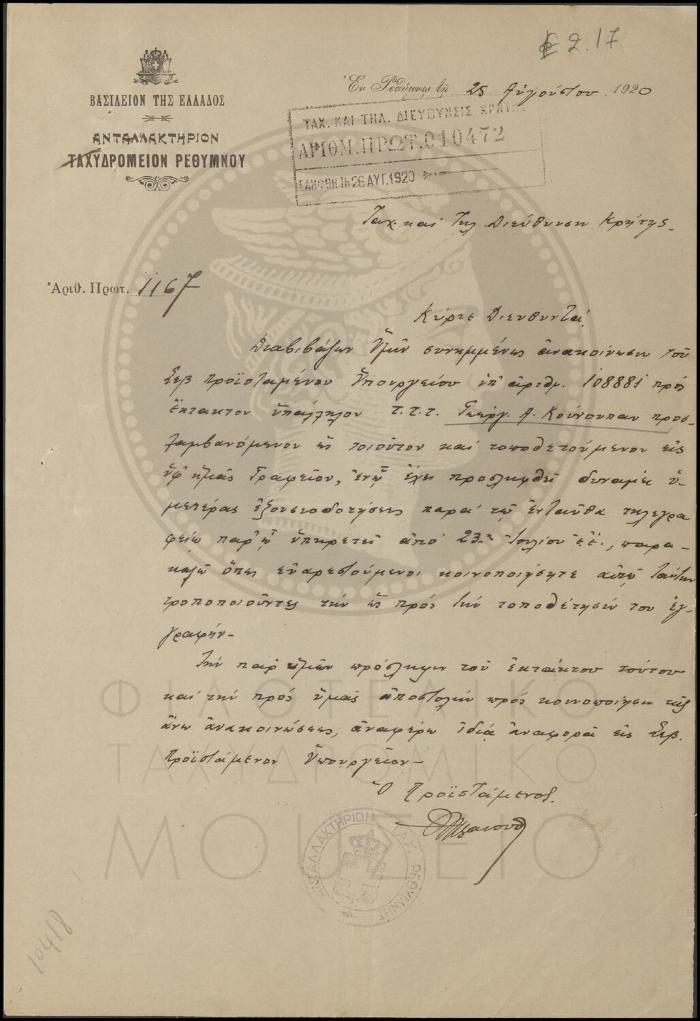 € 2.17
ΒΑΣΙΛΕΙΟΝ ΤΗΣ ΕΛΛΑΔΟΣ
ΑΝΤΑΛΛΑΚΤΗΡΙΟΝ
ΤΑΧΥΔΡΟΜΕΙΟΝ ΡΕΘΥΜΝΟΥ
Ἐν Ῥεθύμνῃ τῇ 25 Αὐγούστου 1920
ΤΑΧ. ΚΑΙ ΤΗΛ. ΔΙΕΥΘΥΝΣΙΣ ΚΡΗΤΗΣ
ΑΡΙΘΜ. ΠΡΩΤ. 010472
ΕΛΗΦΘΗ ΤΗ 26 ΑΥΓ. 1920
Ταχ. καὶ Τηλ Διεύθυνσιν Κρήτης.
Ἀριθ. Πρωτ. 1167
Κύριε Διευθυντά,
Διαβιβάζων Ὑμῖν συνημμένως ἀνακοίνωσιν τοῦ
Σεβ Προϊσταμένου Ὑπουργείου ὑπ' ἀριθμ. 108881 πρὸς
ἔκτακτον ὑπάλληλον τ.τ.τ. Γεώργ. Α. Κούνουπαν προσ-
λαμβανόμενον ὡς τοιοῦτον καὶ τοποθετούμενον εἰς
ὑφ' ἡμᾶς Γραφεῖον, ἐνῷ ἔχει προσληφθεῖ δυνάμει ὑ-
μετέρας ἐξουσιοδοτήσεως παρὰ τῷ ἐνταῦθα τηλεγρα-
φείῳ παρ' ᾧ ὑπηρετεῖ ἀπὸ 23ης Ἰουλίου ἐ.ἔ., παρα-
καλῶ ὅπως εὐαρεστούμενοι κοινοποιήσητε αὐτῷ ταύτην
τροποποιοῦντες τὴν ὡς πρὸς τὴν τοποθέτησίν του ἐγ-
γραφήν.-
Τὴν παρ' ὑμῶν πρόσληψιν τοῦ ἐκτάκτου τούτου
καὶ τὴν πρὸς ὑμᾶς ἀποστολὴν πρὸς κοινοποίησιν τῆς
ἄνω ἀνακοινώσεως, ἀναφέρω ἰδίᾳ ἀναφορᾷ εἰς Σεβ.
Προϊστάμενον Ὑπουργεῖον.-
Ὁ Προϊστάμενος.
ΑΝΤΑΛΛΑΚΤΗΡΙΟΝ ΤΑΧ. ΡΕΘΥΜΝΗΣ
ΦΙΛΟΤΕΛΙΚΟ
ΤΑΧΥΔΡΟΜΙΚΟ
ΜΟΥΣΕΙΟ
10418